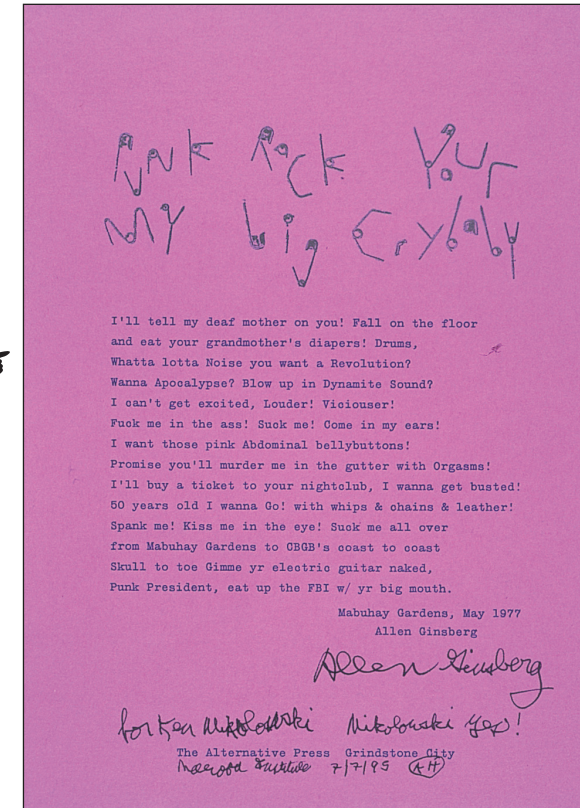 PUNK ROCK YOUr
MY big Crybaby
I'll tell my deaf mother on you! Fall on the floor
and eat your grandmother's diapers! Drums,
Whatta lotta Noise you want a Revolution?
Wanna Apocalypse? Blow up in Dynamite Sound?
I can't get excited, Louder! Viciouser!
Fuck me in the ass! Suck me! Come in my ears!
I want those pink Abdominal bellybuttons!
Promise you'll murder me in the gutter with Orgasms!
I'll buy a ticket to your nightclub, I wanna get busted!
50 years old I wanna Go! with whips & chains & leather!
Spank me! Kiss me in the eye! Suck me all over
from Mabuhay Gardens to CBGB's coast to coast
Skull to toe Gimme yr electric guitar naked,
Punk President, eat up the FBI w/ yr big mouth.
Mabuhay Gardens, May 1977
Allen Ginsberg
Allen Ginsberg
for Ken Mikolowski Mikolowski Yes!
The Alternative Press Grindstone City
Institute 7/7/95 AH